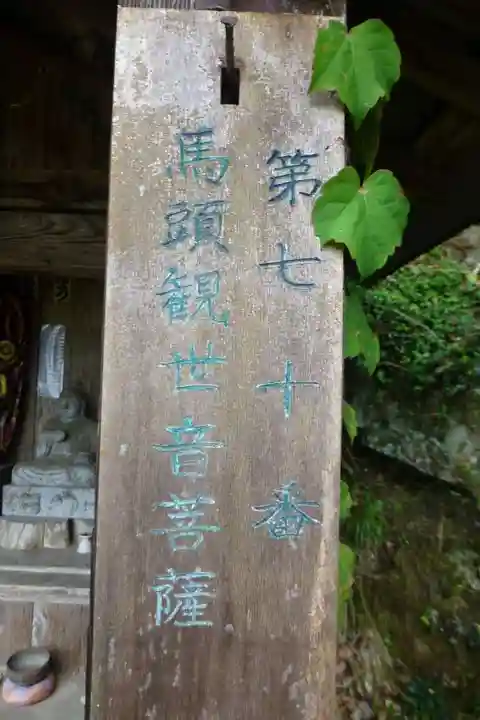 第七十番
馬頭観世音菩薩